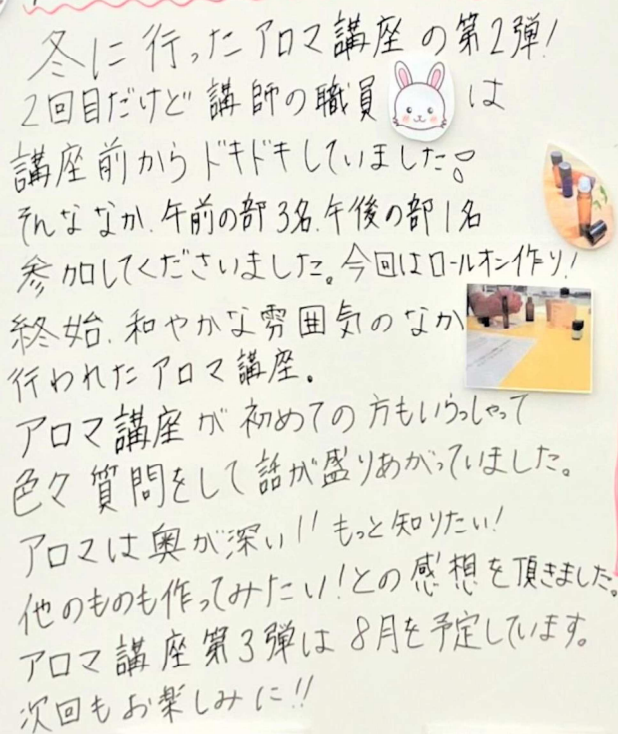 冬に行ったアロマ講座の第2弾!
2回目だけど講師の職員は
講座前からドキドキしていました。
そんななか、午前の部3名、午後の部1名
参加してくださいました。今回はロールオン作り!
終始、和やかな雰囲気のなか
行われたアロマ講座。
アロマ講座が初めての方もいらっしゃって
色々質問をして話が盛りあがっていました。
アロマは奥が深い!!もっと知りたい!
他のものも作ってみたい!との感想を頂きました。
アロマ講座第3弾は8月を予定しています。
次回もお楽しみに!!